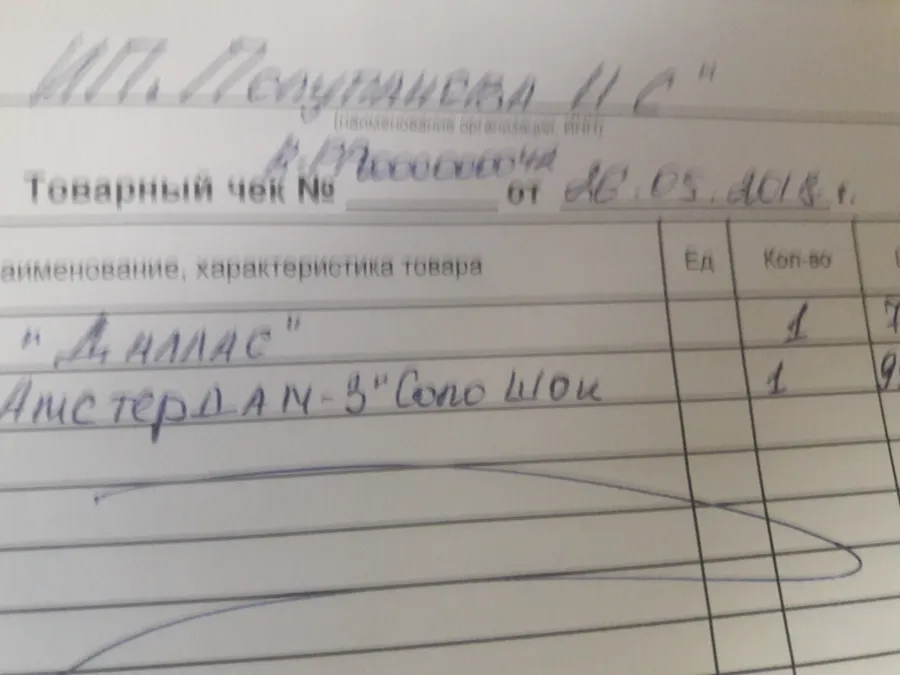 ИП. Полупанова Н С"
(наименование организации, ИНН)
Товарный чек № от 26.05.2018 г.
аименование, характеристика товара Ед Кол-во
"Даллас" 1 7
Амстердам-3" Соло шок 1 9